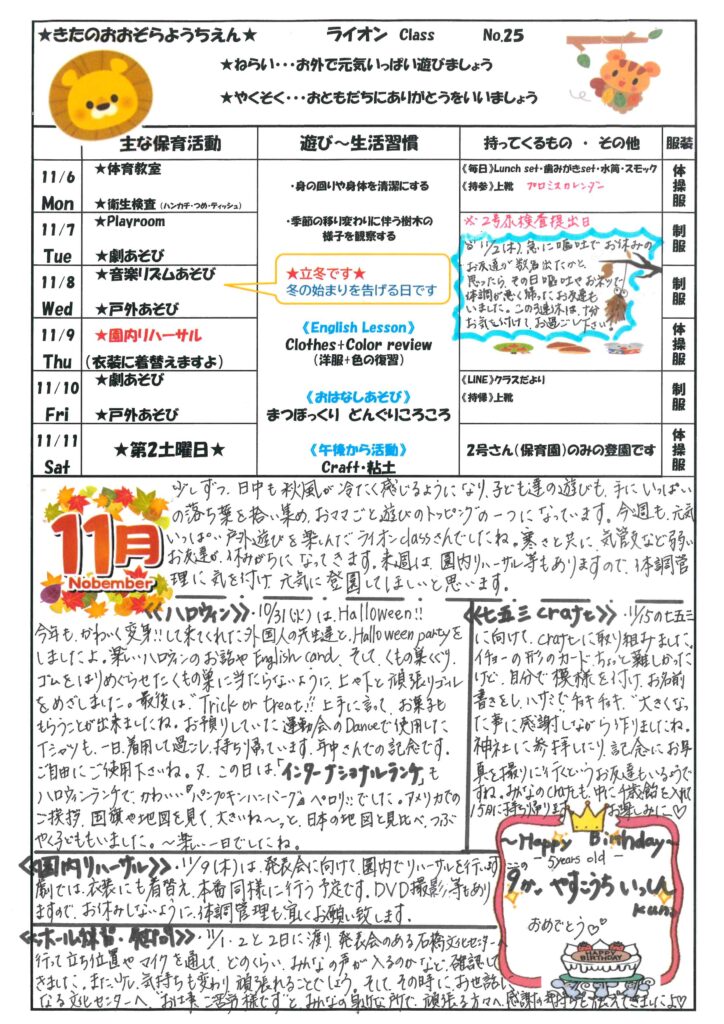 ★きたのおおぞらようちえん★ ライオン Class No.25
★ねらい・・・お外で元気いっぱい遊びましょう
★やくそく・・・おともだちにありがとうをいいましょう
主な保育活動 遊び～生活習慣 持ってくるもの ・ その他 服装
11/6 Mon
★体育教室
★衛生検査 (ハンカチ・つめ・ティッシュ)
・身の回りや身体を清潔にする
《毎日》Lunch set・歯みがきset・水筒・スモック
《持参》上靴 プロミスカレンダー
体操服
11/7 Tue
★Playroom
★劇あそび
・季節の移り変わりに伴う樹木の
様子を観察する
※2号尿検査提出日
制服
11/2(木)、急に嘔吐でお休みの
お友達が数名出たかと
思ったら、その日嘔吐やお熱で
体調が悪く帰ったお友達も
いました。この3連休は、十分
お気を付けて、お過ごし下さい。
11/8 Wed
★音楽リズムあそび
★戸外あそび
★立冬です★
冬の始まりを告げる日です
制服
11/9 Thu
★園内リハーサル
(衣装に着替えますよ)
《English Lesson》
Clothes+Color review
(洋服+色の復習)
体操服
11/10 Fri
★劇あそび
★戸外あそび
《おはなしあそび》
まつぼっくり どんぐりころころ
《LINE》クラスだより
《持帰》上靴
制服
11/11 Sat
★第2土曜日★
《午後から活動》
Craft・粘土
2号さん(保育園)のみの登園です
体操服
11月
Nobember
少しずつ、日中も秋風が冷たく感じるようになり、子ども達の遊びも、手にいっぱい
の落ち葉を拾い集め、おママごと遊びのトッピングの一つになっています。今週も、元気
いっぱい戸外遊びを楽しんだライオンclassさんでしたね。寒さと共に、気管など弱い
お友達が、休みがちになってきます。来週は、園内リハーサル等もありますので、体調管
理に気を付け、元気に登園してほしいと思います。
《ハロウィン》・10/31(火)は、Halloween!!
今年も、かわいく変身!!して来てくれた外国人の先生達と、Halloween partyを
しましたよ。楽しいハロウィンのお話やEnglish card、そして、くもの巣くぐり。
ゴムをはりめぐらせたくもの巣に当たらないように、上や下と頑張りゴール
をめざしました。最後は、“Trick or treat!!”上手に言って、お菓子も
もらうことが出来ましたね。お預りしていた運動会のDanceで使用した
Tシャツも、一日、着用して過ごし、持ち帰っています。年中さんでの記念です。
ご自由にご使用下さいね。又、この日は、「インターナショナルランチ」も
ハロウィンランチで、かわいい『パンプキンハンバーグ』ペロリ!!でした。アメリカでの
ご挨拶、国旗や地図を見て、大きいね～っと、日本の地図と見比べ、つぶ
やく子どももいました。～楽しい一日でしたね。
《七五三craft》・11/15の七五三
に向けて、craftに取り組みました。
イチョーの形のカード、ちょっと難しかった
けど、自分で模様を付け、お名前
書きをし、ハサミで、チョキチョキ、“大きくなっ
た事に感謝しながら作りましたね。
神社に参拝したり、記念にお写
真を撮りに行くというお友達もいるようで
すね。みなのcraftも、中に千歳飴を入れて
15日に持ち帰ります。お楽しみに♡
《園内リハーサル》・11/9(木)は、発表会に向けて、園内でリハーサルを行います。この
劇では、衣装にも着替え、本番同様に行う予定です。DVD撮影等もあり
ますので、お休みしないように、体調管理も宜しくお願い致します。
～Happy Birthday～
- 5years old -
9か.やすこうち いっしん
kun♪
おめでとう♡
HAPPY BIRTHDAY
・11/1・2と2日に渡り、発表会のある石橋文化センターへ
行って立ち位置やマイクを通して、どのくらい、みんなの声が入るのかなど、確認して
きました。また少し、気持ちも変わり、頑張れることでしょう。そして、その時にお世話に
なる文化センターへ、“お仕事ご苦労様です”と、みんなの身近な所で、頑張る方々へ、感謝の気持ちも伝えてきましたよ♡